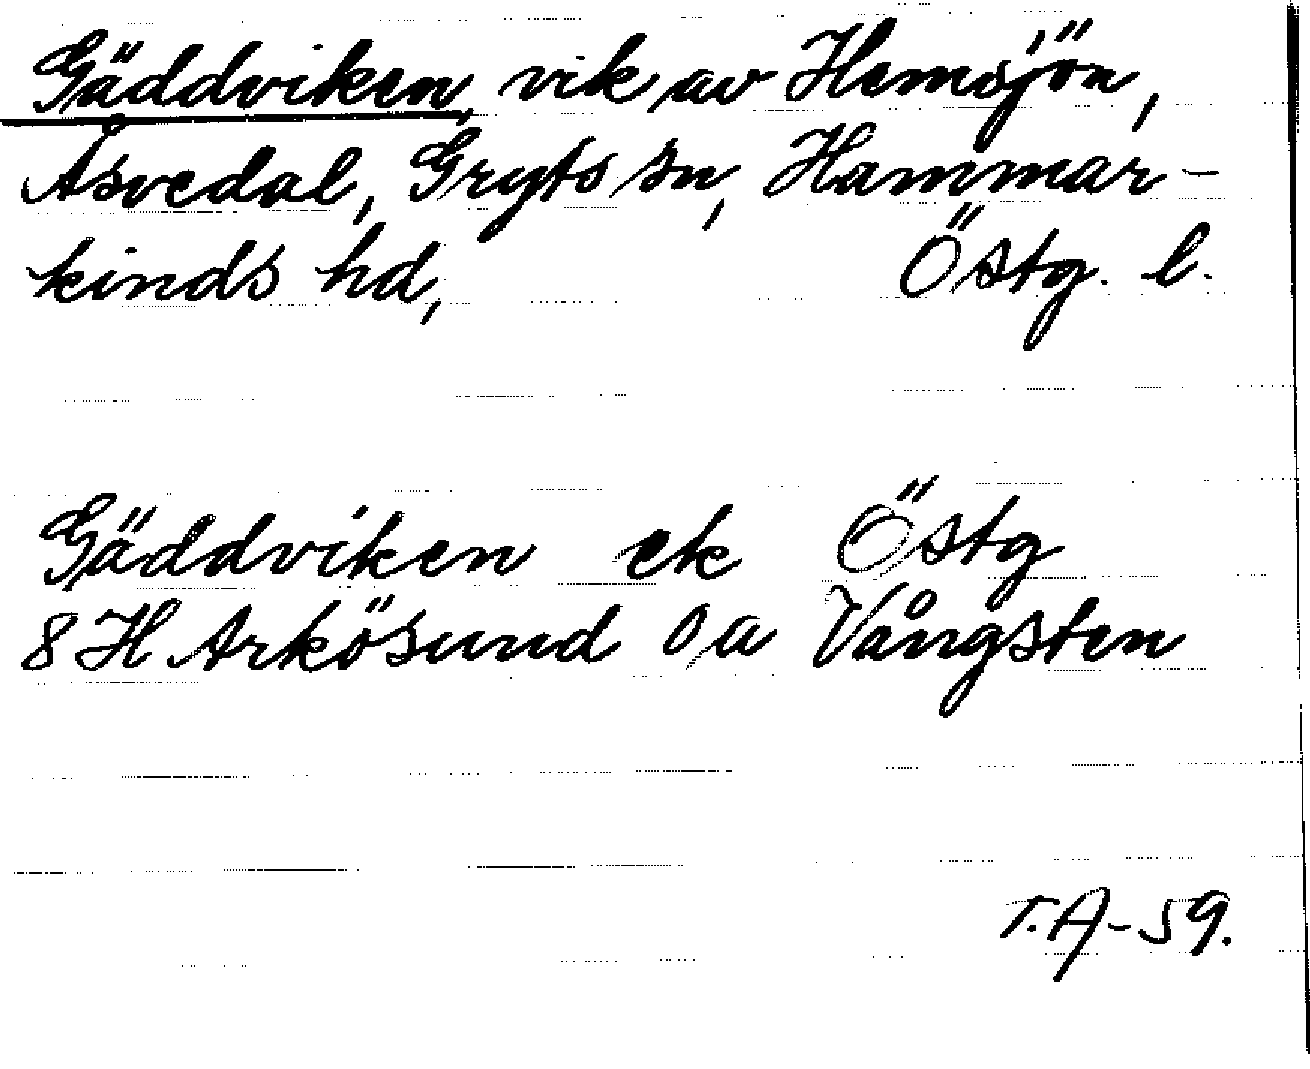 Gäddviken, vik av Hemsjön,
Åsvedal, Gryts sn, Hammar-
kinds hd, Östg. l.
Gäddviken ek Östg
8 H Arkösund o a Vångsten
T.A-59.